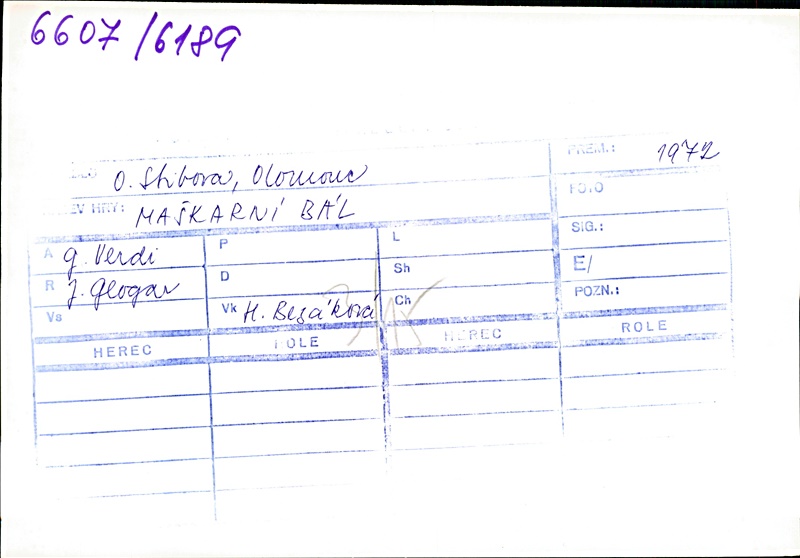 6607/6189
PREM.: 1972
O. Stibora, Olomouc
FOTO
EV HRY: MAŠKARNÍ BÁL
SIG.:
A G. Verdi P L
E/
R J. Glogar D Sh
POZN.:
Vs Vk H. Bezáková Ch
HEREC ROLE HEREC ROLE